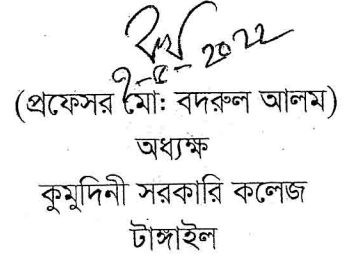 ৭-৫-২০২২
(প্রফেসর মো: বদরুল আলম)
অধ্যক্ষ
কুমুদিনী সরকারি কলেজ
টাঙ্গাইল